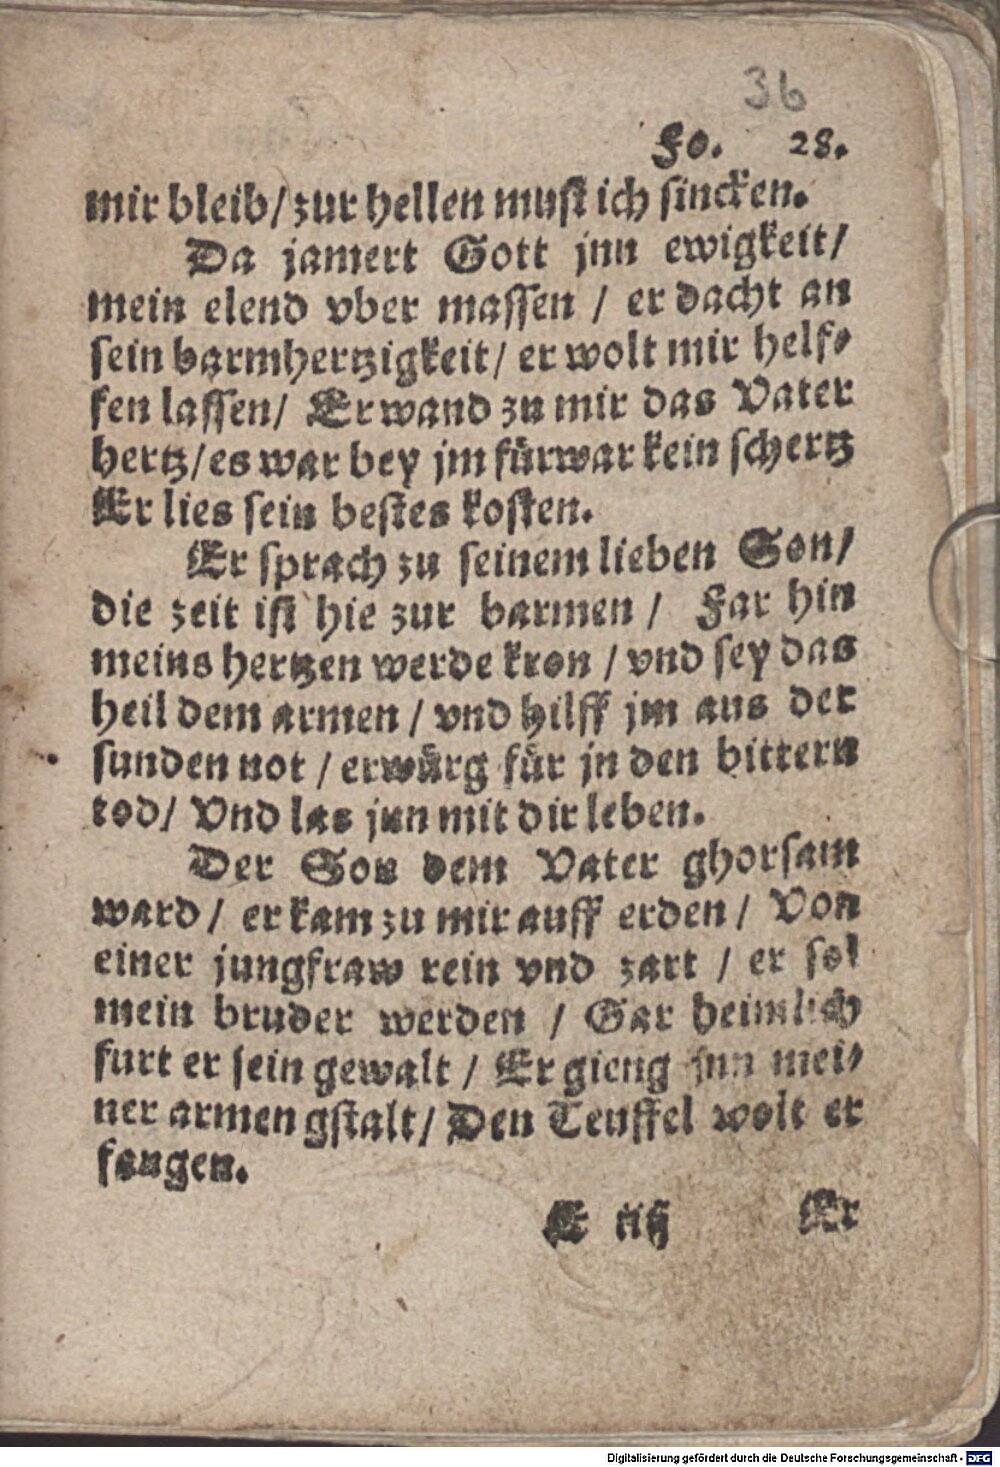 36
Fo. 28.
mir bleib/ zur hellen must ich sincken.
Da jamert Gott jnn ewigkeit/
mein elend vber massen / er dacht an
sein barmhertzigkeit/ er wolt mir helf-
fen lassen/ Er wand zu mir das Vater
hertz/ es war bey jm fürwar kein schertz
Er lies sein bestes kosten.
Er sprach zu seinem lieben Son/
die zeit ist hie zur barmen / Far hin
meins hertzen werde kron / vnd sey das
heil dem armen / vnd hilff jm aus der
sunden not / erwürg für jn den bittern
tod/ Vnd las jnn mit dir leben.
Der Son dem Vater ghorsam
ward/ er kam zu mir auff erden/ Von
einer jungfraw rein vnd zart / er sol
mein bruder werden / Gar heimlich
furt er sein gewalt / Er gieng jnn mei-
ner armen gstalt/ Den Teuffel wolt er
fangen.
E iiij Er
Digitalisierung gefördert durch die Deutsche Forschungsgemeinschaft - DFG